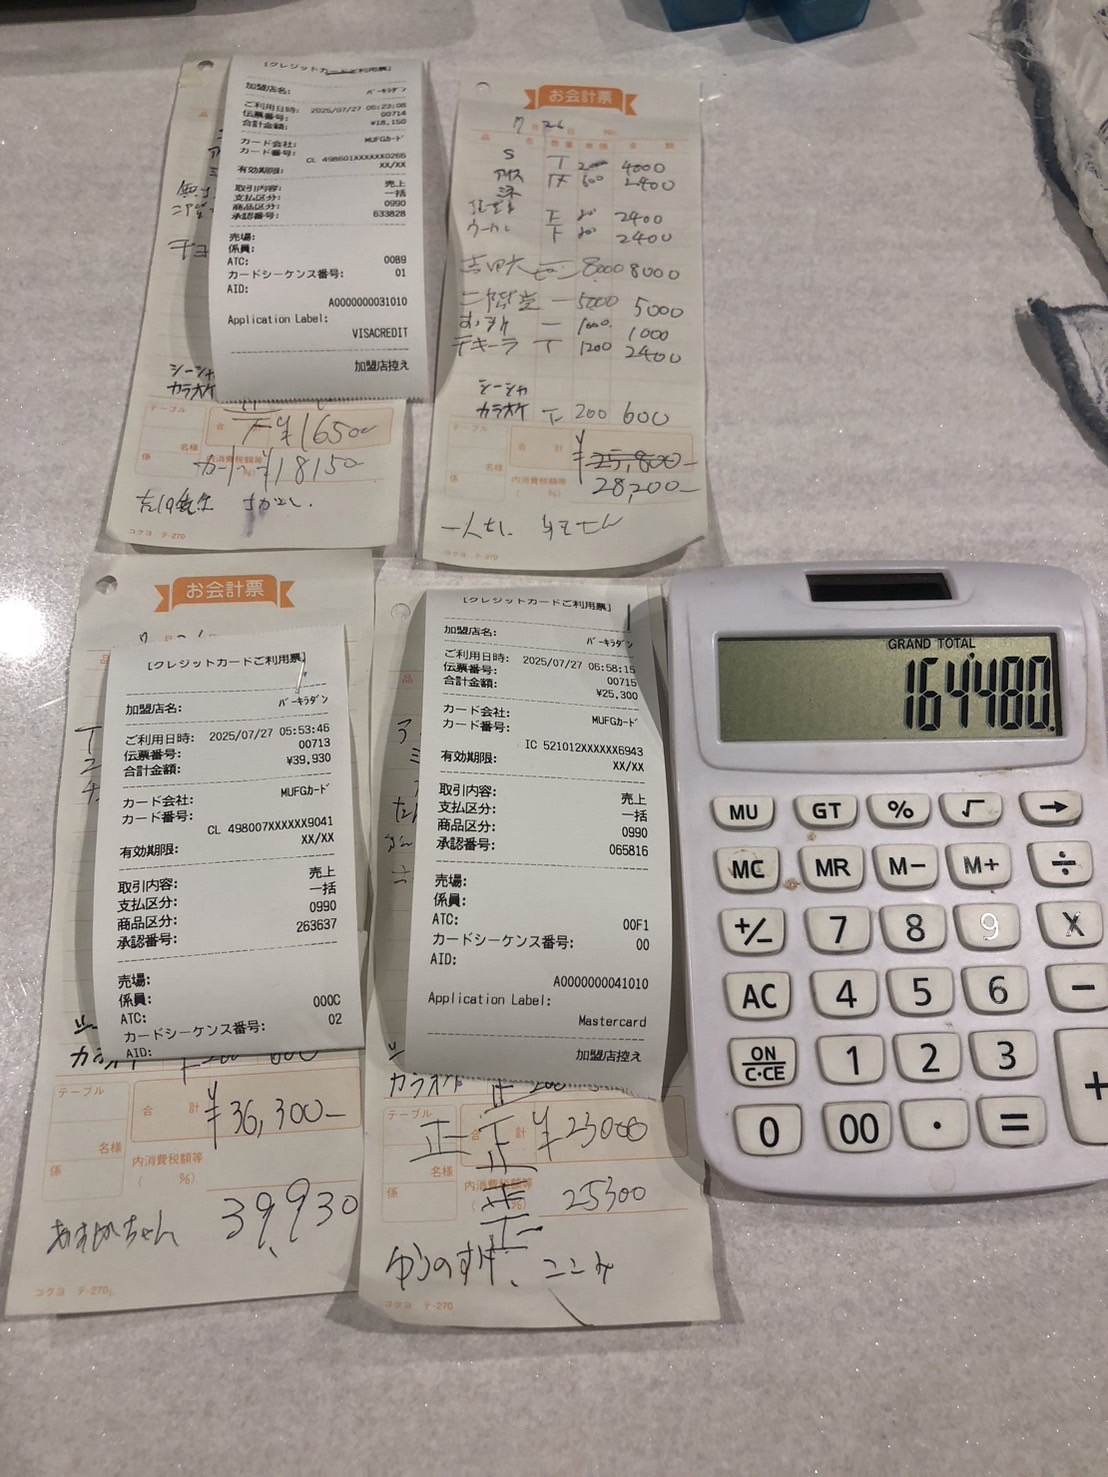 [クレジットカードご利用票]
加盟店名: バーキラダン
ご利用日時: 2025/07/27 06:23:08
伝票番号: 00714
合計金額: ¥18,150
カード会社: MUFGカード
カード番号:
CL 498601XXXXXX0266
有効期限: XX/XX
取引内容: 売上
支払区分: 一括
商品区分: 0990
承認番号: 633828
売場:
係員:
ATC: 0089
カードシーケンス番号: 01
AID:
A0000000031010
Application Label:
VISACREDIT
加盟店控え
シーシャ
カラオケ
テーブル
名様
係
合 計
¥16500-
内消費税額等
( %)
カード ¥18150-
コクヨ テ-270
お会計票
7月26日 No.
品 名 数量 単価 金額
S T 4000
アイス 600 2400
2400
2400
吉四六 一 8000 8000
二階堂 一 5000 5000
一 1000 1000
テキーラ T 1200 2400
シーシャ
カラオケ 下 200 600
テーブル
名様
係
合 計
¥25,800-
28,200-
内消費税額等
( %)
コクヨ テ-270
お会計票
[クレジットカードご利用票]
加盟店名: バーキラダン
ご利用日時: 2025/07/27 05:53:46
伝票番号: 00713
合計金額: ¥39,930
カード会社: MUFGカード
カード番号:
CL 498007XXXXXX9041
有効期限: XX/XX
取引内容: 売上
支払区分: 一括
商品区分: 0990
承認番号: 263637
売場:
係員:
ATC: 000C
カードシーケンス番号: 02
AID:
カラオケ 下 200 600
テーブル
名様
係
合 計
¥36,300-
内消費税額等
( %)
39,930
あすかちゃん
コクヨ テ-270
[クレジットカードご利用票]
加盟店名: バーキラダン
ご利用日時: 2025/07/27 06:58:15
伝票番号: 00715
合計金額: ¥25,300
カード会社: MUFGカード
カード番号:
IC 521012XXXXXX6943
有効期限: XX/XX
取引内容: 売上
支払区分: 一括
商品区分: 0990
承認番号: 065816
売場:
係員:
ATC: 00F1
カードシーケンス番号: 00
AID:
A0000000041010
Application Label:
Mastercard
加盟店控え
カラオケ 正 200
テーブル
名様
係
正一 正
合 計
¥23000
正
内消費税額等
( %)
正
25300
ゆうのすけ、ここみ
コクヨ テ-270
GRAND TOTAL
164'480.
MU GT % √ →
MC MR M- M+ ÷
+/- 7 8 9 X
AC 4 5 6 -
ON
C·CE 1 2 3 +
0 00 · =